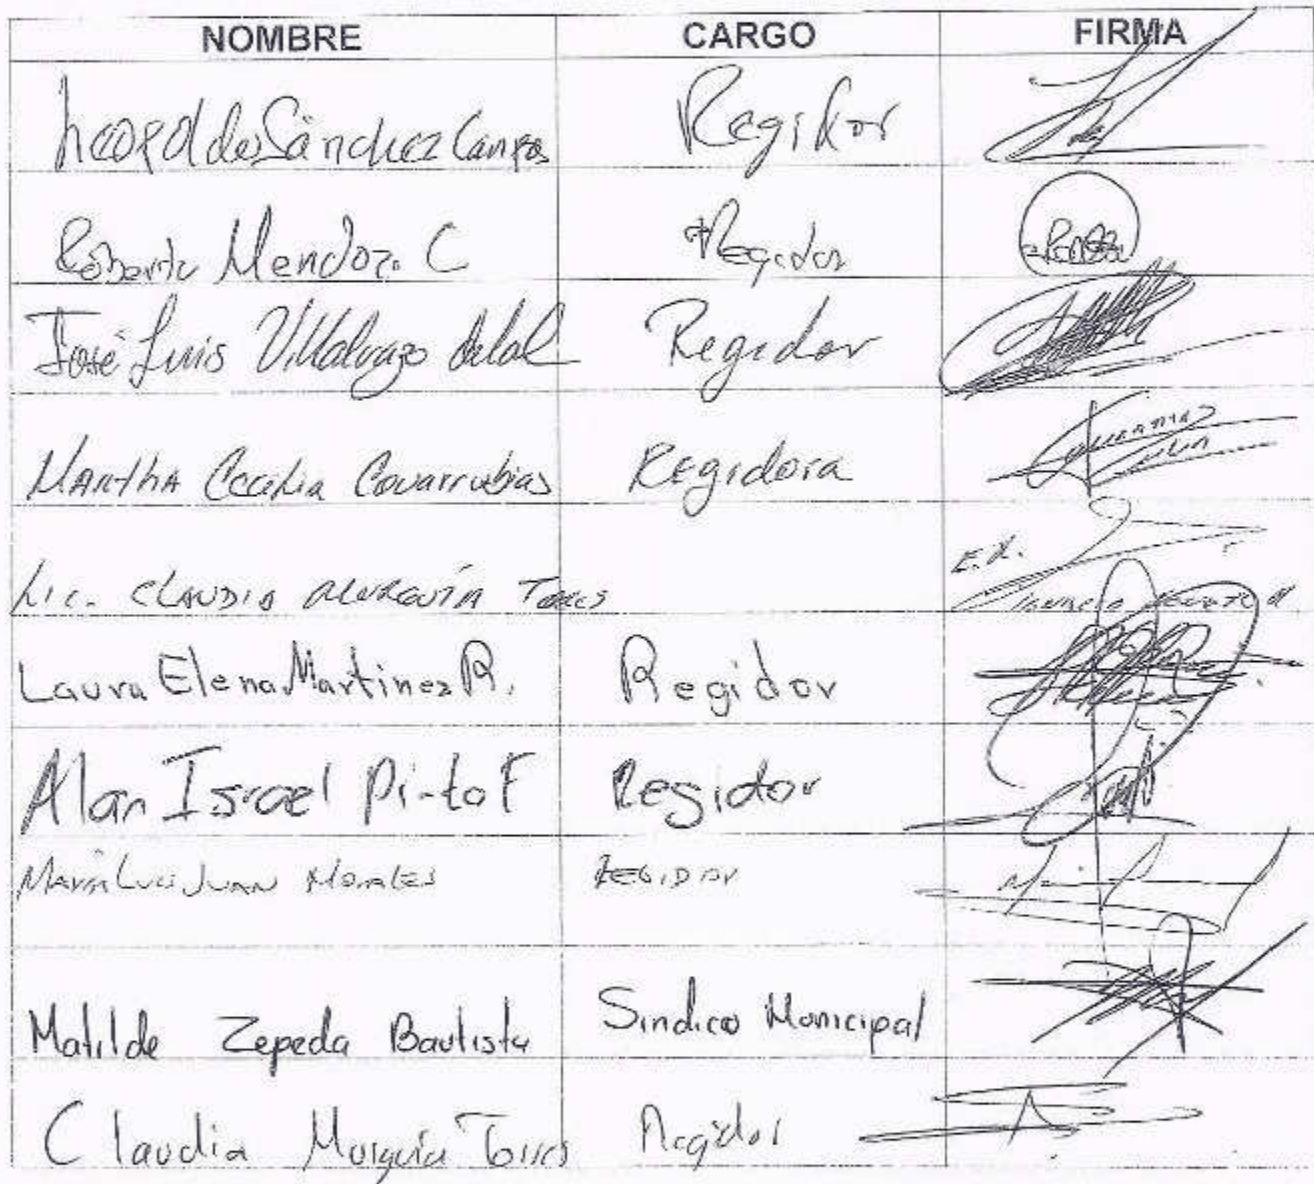 NOMBRE CARGO FIRMA
Leopoldo Sánchez Campos Regidor
Roberto Mendoza C Regidor
José Luis Villalvazo delaL Regidor
Martha Cecilia Covarrubias Regidora
Lic. CLAUDIA MURGUÍA Torres E.R.
Laura Elena Martinez R. Regidor
Alan Israel Pinto F Regidor
María Luis JUAN MORALES REGIDOR
Matilde Zepeda Bautista Sindico Municipal
Claudia Murguía Torres Regidor